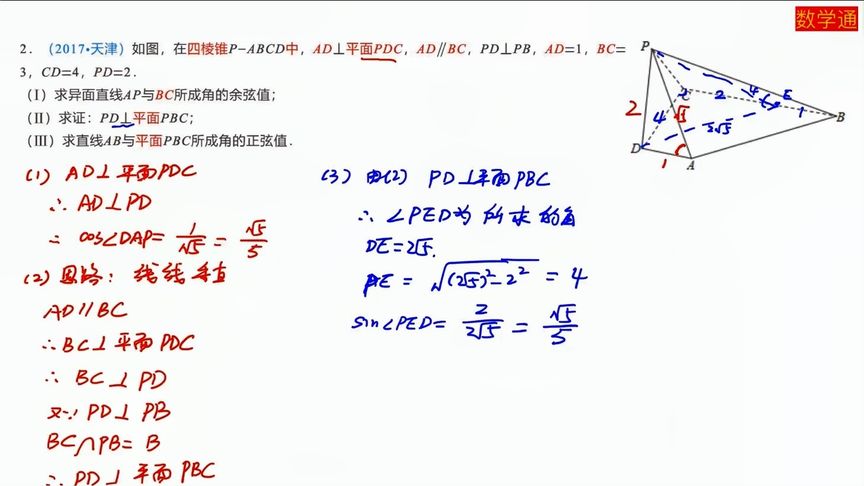 数学通
2．（2017•天津）如图，在四棱锥P-ABCD中，AD⊥平面PDC，AD∥BC，PD⊥PB，AD=1，BC=
3，CD=4，PD=2．
（Ⅰ）求异面直线AP与BC所成角的余弦值；
（Ⅱ）求证：PD⊥平面PBC；
（Ⅲ）求直线AB与平面PBC所成角的正弦值．
P
E
B
C
D
A
2
4
√5
2
4
1
2√5
1
(1) AD⊥平面PDC
∴ AD⊥PD
= cos∠DAP= 1/√5 = √5/5
(2) 思路: 线线垂直
AD∥BC
∴BC⊥平面PDC
∴ BC⊥PD
又∵ PD⊥PB
BC∩PB= B
∴ PD⊥平面PBC
(3) 由(2) PD⊥平面PBC
∴ ∠PED为所求的角
DE=2√5.
PE = √((2√5)²-2²) = 4
sin∠PED= 2/2√5 = √5/5